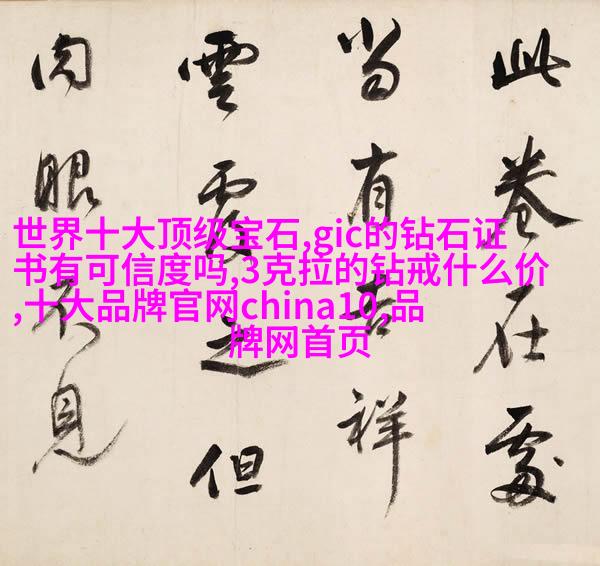 此卷在處
當有吉祥
雲覆之但
肉眼不見
世界十大顶级宝石,gic的钻石证
书有可信度吗,3克拉的钻戒什么价
,十大品牌官网china10,品
牌网首页